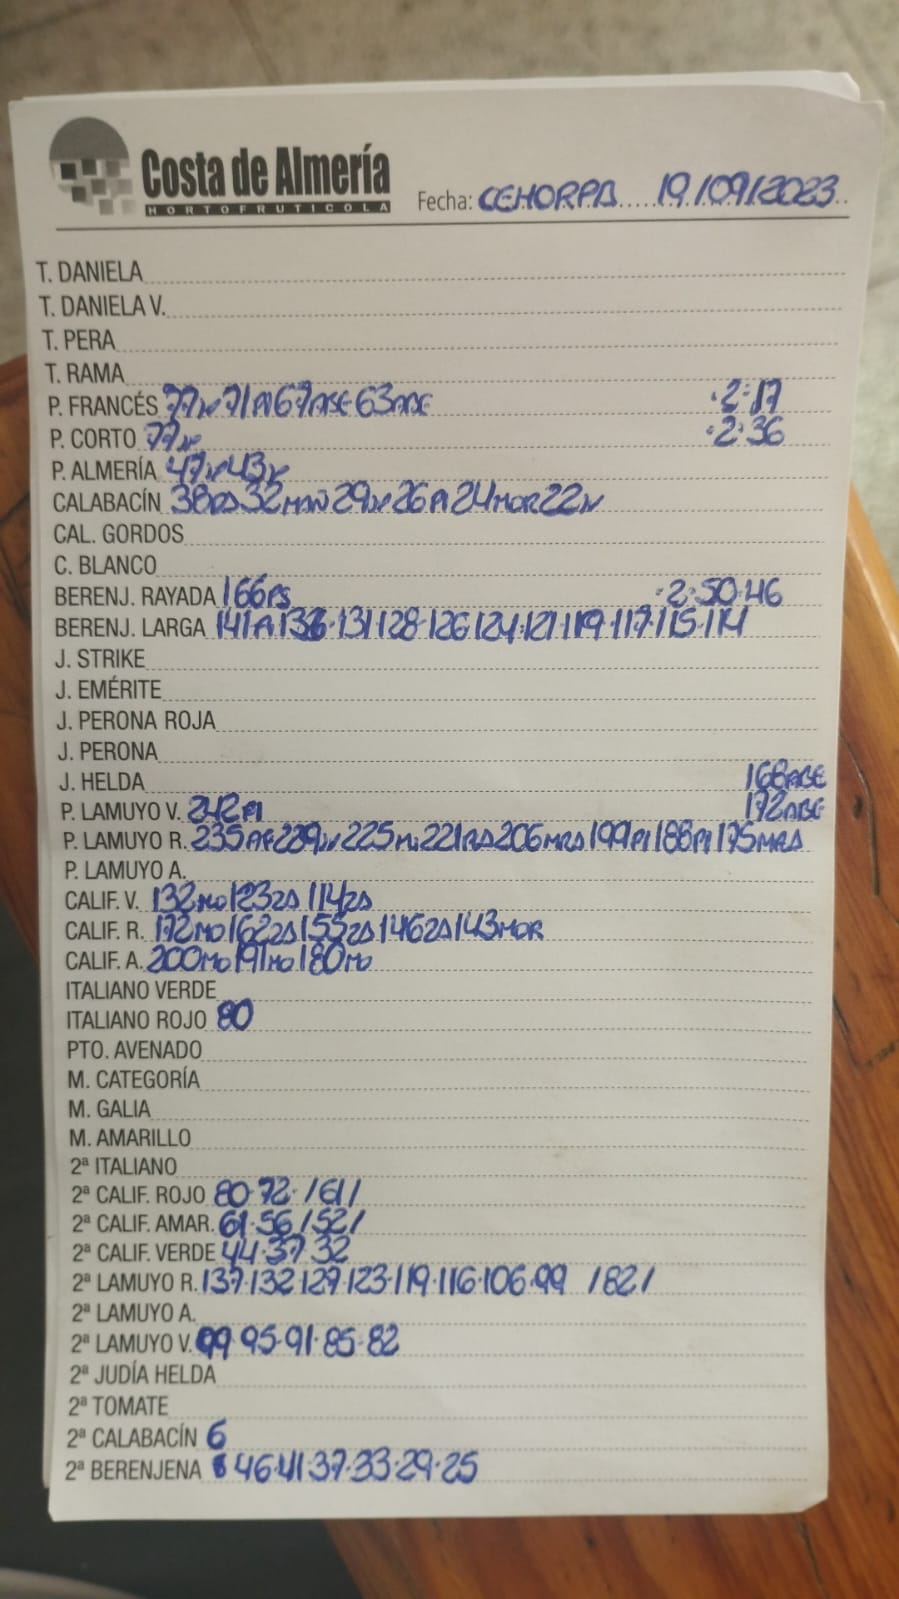 Costa de Almería
HORTOFRUTICOLA
Fecha: CEHORPA 19/09/2023
T. DANIELA
T. DANIELA V.
T. PERA
T. RAMA
P. FRANCÉS 77 71PI 67ASE 63ABE ·2·17
P. CORTO 77 ·2·36
P. ALMERÍA 47 43
CALABACÍN 38 32MAÑ 29 26PI 24MOR 22
CAL. GORDOS
C. BLANCO
BERENJ. RAYADA 166PS ·2·50·46
BERENJ. LARGA 141A 136·131·128·126·124·121·119·117·115·114
J. STRIKE
J. EMÉRITE
J. PERONA ROJA
J. PERONA
J. HELDA 168ABE
P. LAMUYO V. 242PI 172ABE
P. LAMUYO R. 235 229 225 221 206MRA 199PI 188PI 175MRA
P. LAMUYO A.
CALIF. V. 132MO 123ZA 114ZA
CALIF. R. 172MO 162ZA 155ZA 146ZA 143MOR
CALIF. A. 200MO 191MO 180MO
ITALIANO VERDE
ITALIANO ROJO 80
PTO. AVENADO
M. CATEGORÍA
M. GALIA
M. AMARILLO
2ª ITALIANO
2ª CALIF. ROJO 80·72· /61/
2ª CALIF. AMAR. 61·56 /52/
2ª CALIF. VERDE 44·37·32
2ª LAMUYO R. 137·132·127·123·119·116·106·99 /82/
2ª LAMUYO A.
2ª LAMUYO V. 99·95·91·85·82
2ª JUDÍA HELDA
2ª TOMATE
2ª CALABACÍN 6
2ª BERENJENA 46·41·37·33·29·25